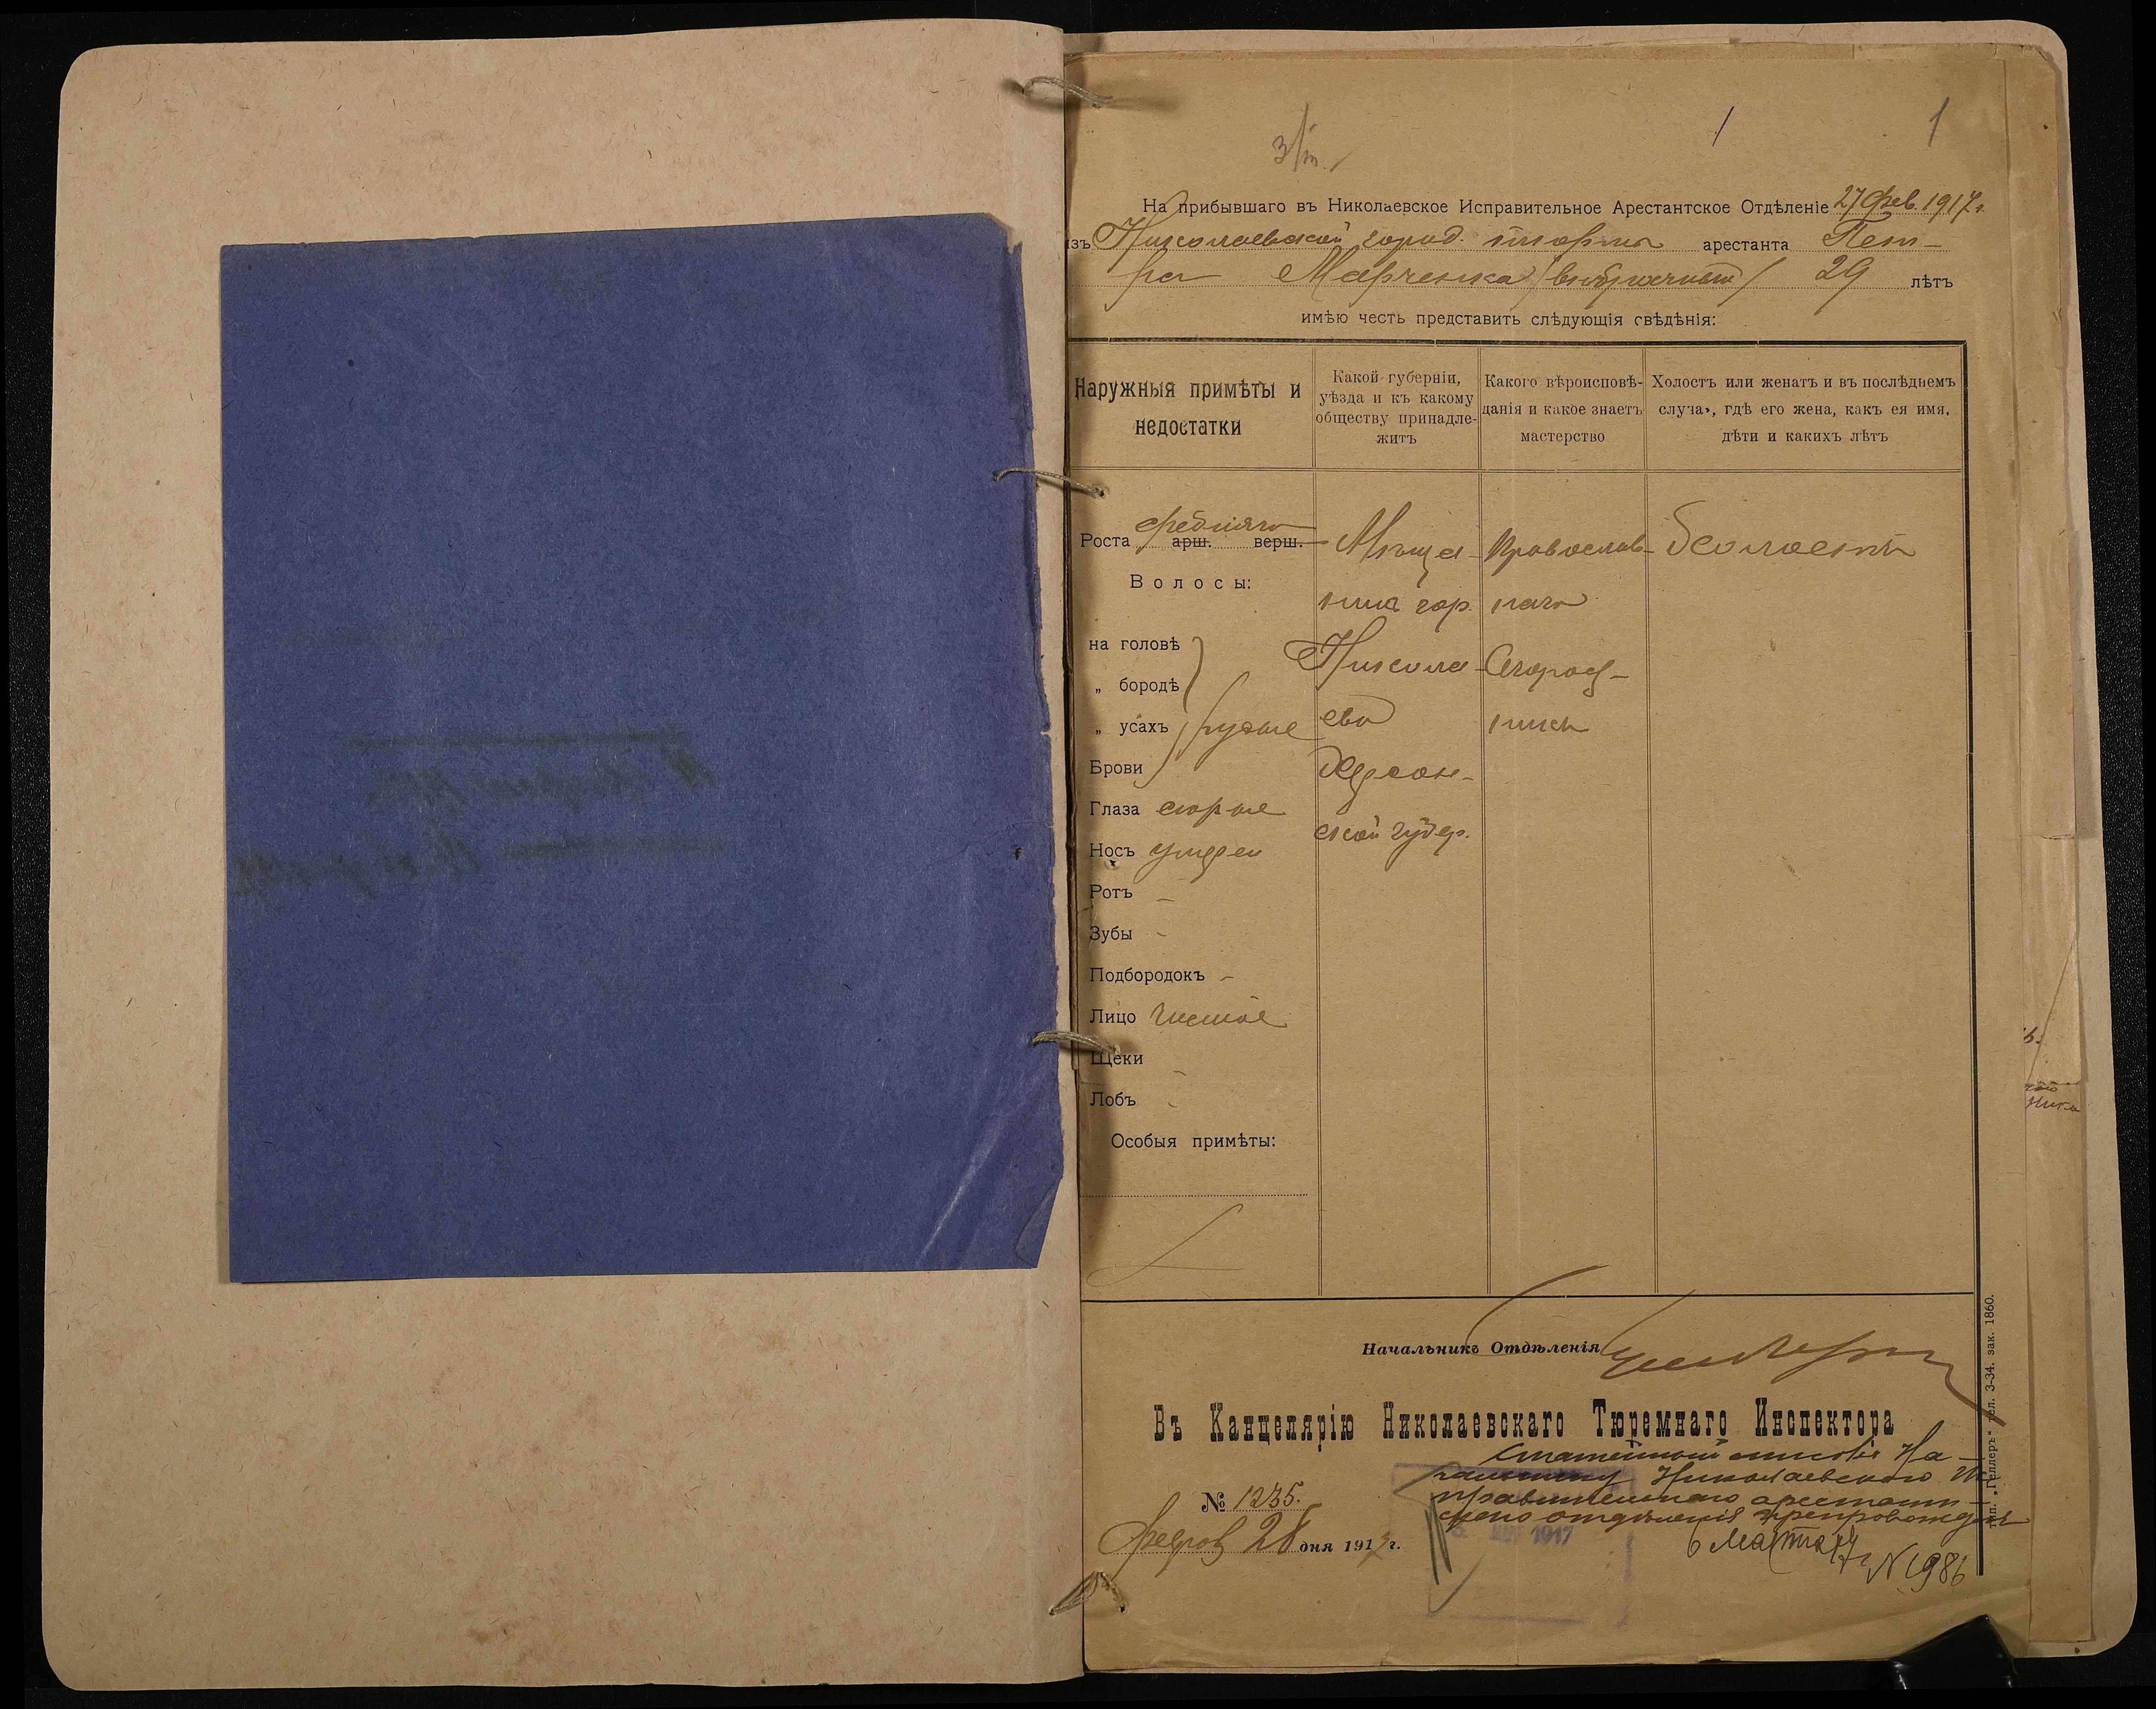 1
1
На прибывшаго въ Николаевское Исправительное Арестантское Отдѣленіе 27 Фев. 1917 г.
изъ Николаевской город. тюрьмы арестанта Пет-
ра Марченка 29 лѣтъ
имѣю честь представить слѣдующія свѣдѣнія:
Наружныя примѣты и
недостатки
Какой губерніи,
уѣзда и къ какому
обществу принадле-
житъ
Какого вѣроисповѣ-
данія и какое знаетъ
мастерство
Холостъ или женатъ и въ послѣднемъ
случаѣ, гдѣ его жена, какъ ея имя,
дѣти и какихъ лѣтъ
Роста средняго арш. верш.
Волосы:
на головѣ
„ бородѣ
„ усахъ русые
Брови
Глаза сѣрые
Носъ умѣрен
Ротъ -
Зубы -
Подбородокъ -
Лицо чистое
Щеки -
Лобъ -
Особыя примѣты:
Мѣща-
нинъ гор.
Никола-
ева
Херсон-
ской губер.
Православ-
наго
Огород-
никъ
Холостъ
Начальникъ Отдѣленія
Въ Канцелярію Николаевскаго Тюремнаго Инспектора
№ 1235.
Феврал 28 дня 1917 г.
Статейный списокъ На-
чальнику Николаевского Ис
правительнаго арестант-
скаго отдѣленія препровожден
6 Марта 17 г. N 1986
1917
тип. „Геллеръ“ тел. 3-34. зак. 1860.